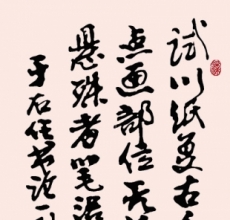 试以纸墨古
点画部位无
悬殊者笔活
于右任书论一